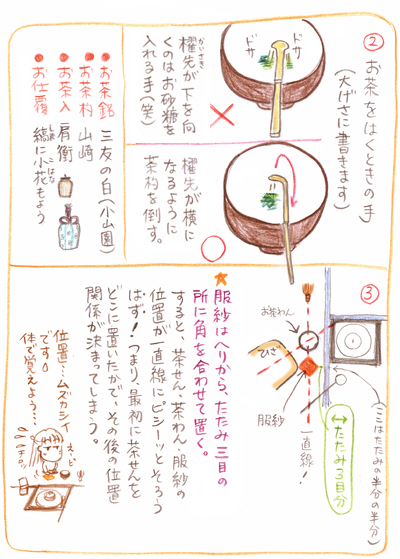 ② お茶をはくときの手
(大げさに書きます)
ドサ
ドサ
櫂先が下を向
かいさき
くのはお砂糖を
入れる手(笑)
櫂先が横に
なるように
茶杓を倒す。
お茶銘 三友の白(小山園)
お茶杓 山崎
お茶入 肩衝
お仕覆 縞に小花もよう
しま こばな
③
(ここはたたみの半分の半分)
↔たたみ3目分
お茶わん
ひざ
服紗
一直線!
★服紗はへりから、たたみ三目の
所に角を合わせて置く。
すると、茶せん、茶わん、服紗の
位置が一直線にピシーッとそろう
はず!つまり、最初に茶せんを
どこに置いたかで、その後の位置
関係が決まってしまう。
位置…ムズカシイ
です。
体で覚えよう…
えーと